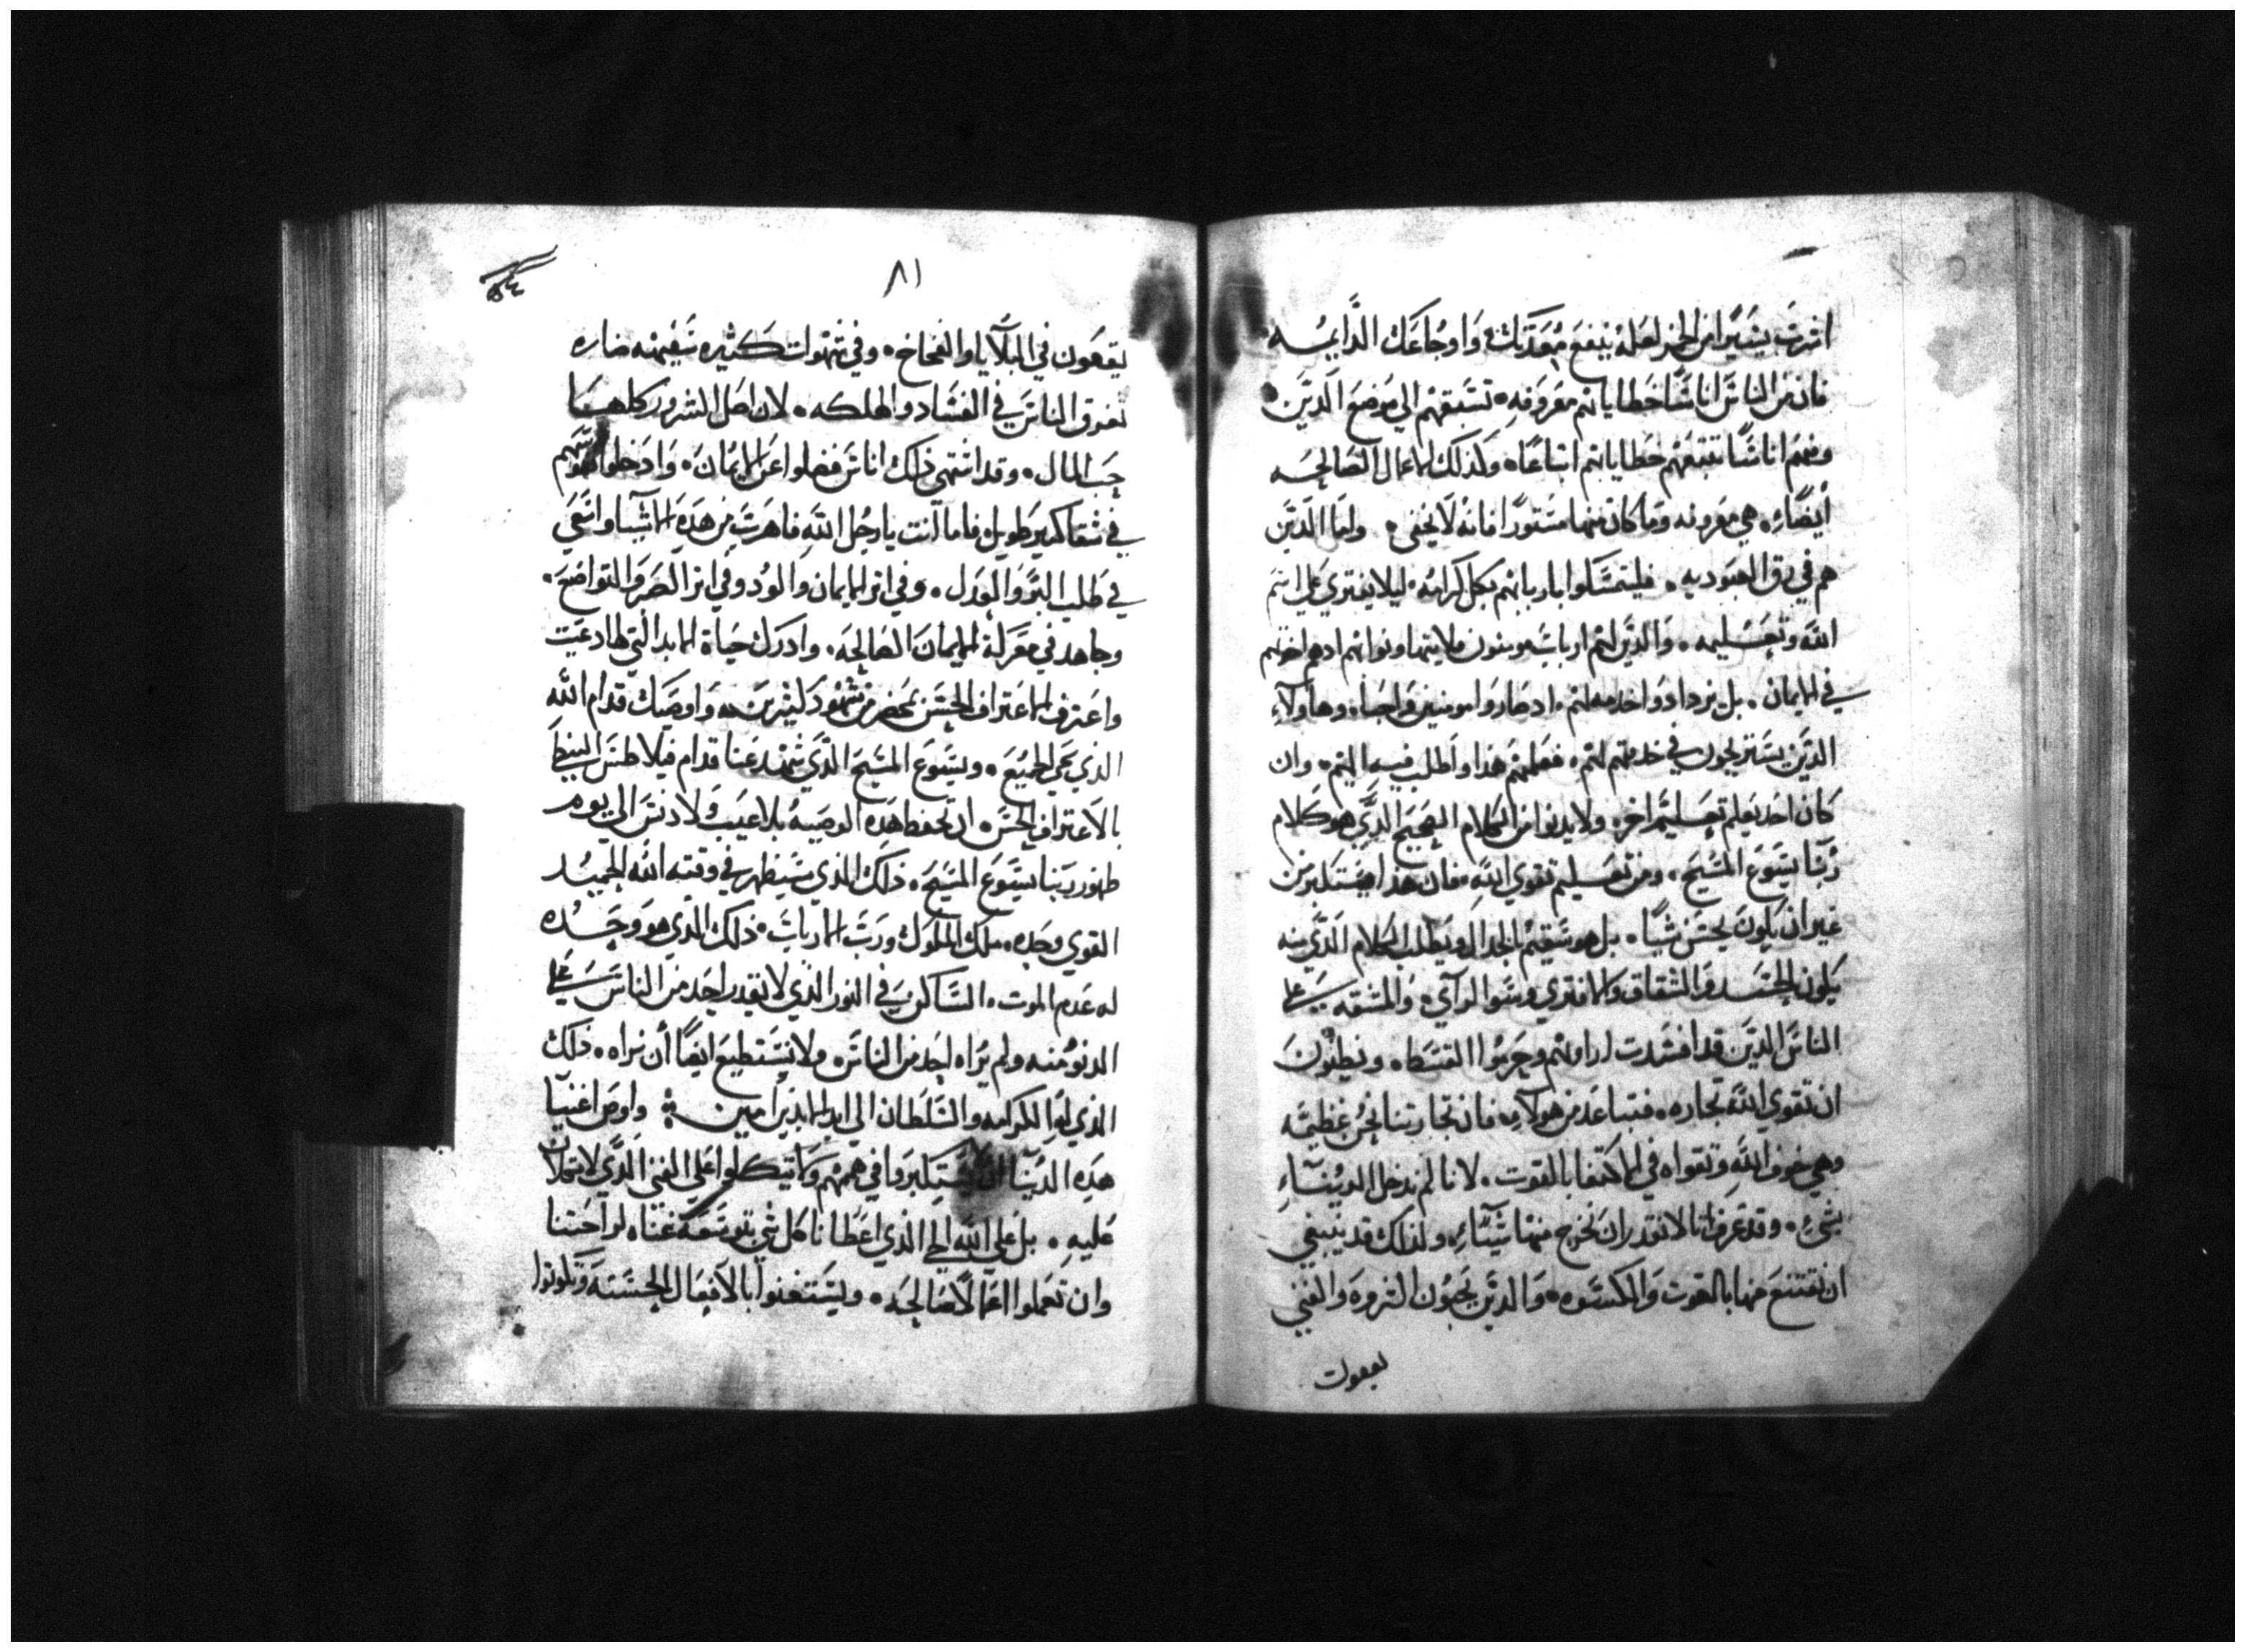 اشرب يسيرا من الخمر لعله ينفع معدتك واوجاعك الدايمه
فان من الناس اناسا خطاياهم معروفه تسبقهم الى موضع الدين
ومنهم اناسا تتبعهم خطاياهم اتباعا وكذلك الاعمال الصالحه
ايضا هي معروفه وما كان منها مستورا فانه لا يخفي واما الدين
هم في رق العبوديه فليتمسكوا باربابهم بكل كرامه ليلا يفتري علي اسم
الله وتعليمه والدين لهم ارباب مومنون فلا يتهاونوا بهم ادهم اخوتهم
في الايمان بل يزدادوا خدمه لهم ادصاروا مومنين واحبا وهاولاء
الدين يستريحون في خدمتهم لهم فعلمهم هذا واطلب فيه اليهم وان
كان احد يعلم تعليم اخر ولا يدنوا من الكلام الصحيح الدي هو كلام
ربنا يسوع المسيح ومن تعليم تقوي الله فان هذا يستكبر من
غير ان يكون يحسن شيا بل هو سقيم بالجدال ويطلب الكلام الدي منه
يكون الحسد والشقاق والافتري وسوا الراي والمشقه علي
الناس الدين قد افسدت اراوهم وحرموا القسط ويظنون
ان تقوي الله تجاره فتباعد من هولاء فان تجارتنا نحن عظيمه
وهي خوف الله وتقواه في الاكتفا بالقوت لانا لم ندخل الدنيا
بشي وقد عرفنا انا لا نقدر ان نخرج منها شيا ولذلك قد ينبغي
ان نقتنع منها بالقوت والكسوه والدين يحبون الثروه والغني
يقعون
٨١
يقعون في البلايا والفخاخ وفي شهوات كثيره سقيمه ضاره
تغرق الناس في الفساد والهلكه لان اصل الشرور كلها
حب المال وقد اشتهي ذلك اناس فضلوا عن الايمان وادخلوا نفوسهم
في شقا كبير طويل فاما انت يا رجل الله فاهرب من هده الاشيا واسعي
في طلب البر والعدل وفي اثر الايمان والود وفي اثر الصبر والتواضع
وجاهد في معركة الايمان الصالحه وادرك حياة الابد التي لها دعيت
واعترف الاعتراف الحسن بمحضر من شهود كثيرين واوصيك قدام الله
الدي يحي الجميع ويسوع المسيح الدي شهد عنا قدام فيلاطس البنطي
بالاعتراف الحسن ان تحفظ هده الوصيه بلا عيب ولا دنس الي يوم
ظهور ربنا يسوع المسيح ذلك الذي سيظهر في وقته الله الحميد
القوي وحده ملك الملوك ورب الارباب ذلك الذي هو وحده
له عدم الموت الساكن في النور الذي لا يقدر احد من الناس علي
الدنو منه ولم يراه احد من الناس ولا يستطيع ايضا ان يراه ذلك
الذي له الكرامه والسلطان الي ابد الابدين امين واوص اغنيا
هده الدنيا ان لا يستكبروا في هممهم ولا يتكلوا علي الغني الذي لا تكلان
عليه بل علي الله الحي الذي اعطانا كل شي بتوسعة غناه لراحتنا
وان تعملوا اعمالا صالحه ويستغنوا بالافعال الحسنه وتكونوا